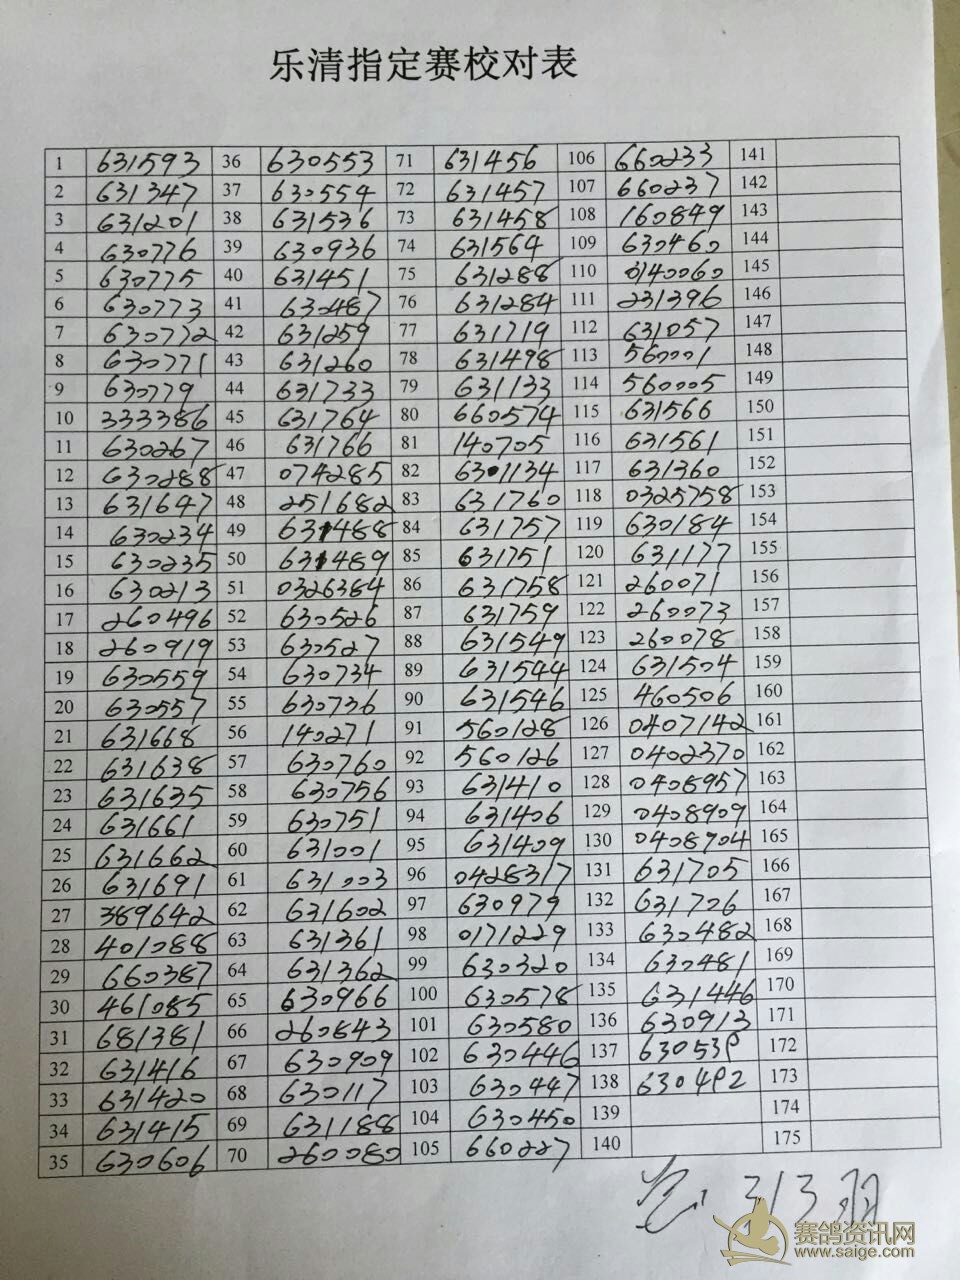 乐清指定赛校对表
1 631593 36 630553 71 631456 106 660233 141
2 631347 37 630554 72 631457 107 660237 142
3 631201 38 631536 73 631458 108 160849 143
4 630776 39 630936 74 631564 109 630460 144
5 630775 40 631451 75 631288 110 0140060 145
6 630773 41 630487 76 631284 111 231396 146
7 630772 42 631259 77 631719 112 631057 147
8 630771 43 631260 78 631498 113 560001 148
9 630779 44 631733 79 631133 114 560005 149
10 333386 45 631764 80 660574 115 631566 150
11 630267 46 631766 81 140705 116 631561 151
12 630288 47 074285 82 6301134 117 631360 152
13 631647 48 251682 83 631760 118 0325758 153
14 630234 49 631488 84 631757 119 630184 154
15 630235 50 631489 85 631751 120 631177 155
16 630213 51 0326384 86 631758 121 260071 156
17 260496 52 630526 87 631759 122 260073 157
18 260919 53 630527 88 631549 123 260078 158
19 630559 54 630734 89 631544 124 631504 159
20 630557 55 630736 90 631546 125 460506 160
21 631668 56 140271 91 560128 126 0407142 161
22 631638 57 630760 92 560126 127 0402370 162
23 631635 58 630756 93 631410 128 0408957 163
24 631661 59 630751 94 631406 129 0408909 164
25 631662 60 631001 95 631409 130 0408704 165
26 631691 61 631003 96 0428317 131 631705 166
27 389642 62 631602 97 630979 132 631706 167
28 401088 63 631361 98 0171229 133 630482 168
29 660387 64 631362 99 630320 134 630481 169
30 461085 65 630966 100 630578 135 631446 170
31 681381 66 260843 101 630580 136 630913 171
32 631416 67 630909 102 630446 137 630538 172
33 631420 68 630117 103 630447 138 630492 173
34 631415 69 631188 104 630450 139 174
35 630606 70 260080 105 660227 140 175
313羽
赛鸽资讯网
www.saige.com